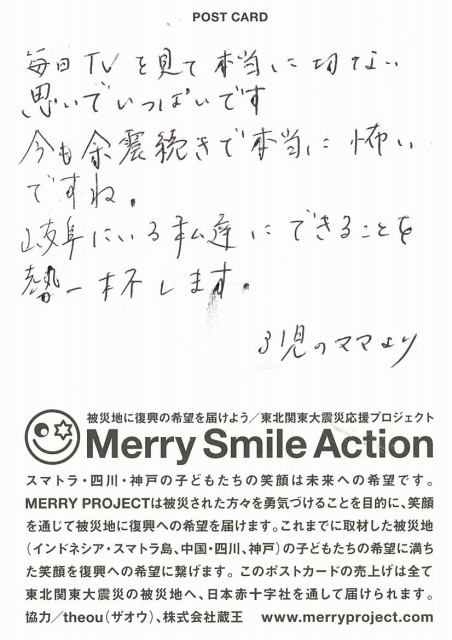 POST CARD
毎日TVを見て本当に切ない
思いでいっぱいです
今も余震続きで本当に怖い
ですね。
岐阜にいる私達にできることを
勢一杯します。
3児のママより
被災地に復興の希望を届けよう／東北関東大震災応援プロジェクト
Merry Smile Action
スマトラ・四川・神戸の子どもたちの笑顔は未来への希望です。
MERRY PROJECTは被災された方々を勇気づけることを目的に、笑顔
を通じて被災地に復興への希望を届けます。これまでに取材した被災地
（インドネシア・スマトラ島、中国・四川、神戸）の子どもたちの希望に満ち
た笑顔を復興への希望に繋げます。このポストカードの売上げは全て
東北関東大震災の被災地へ、日本赤十字社を通して届けられます。
協力／theou（ザオウ）、株式会社蔵王 www.merryproject.com